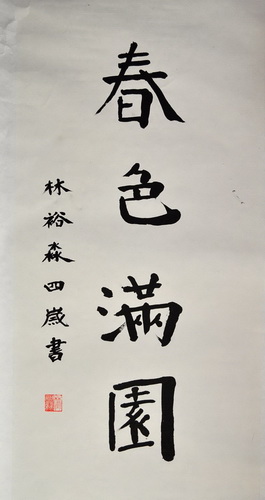 春色滿園
林裕淼四歲書